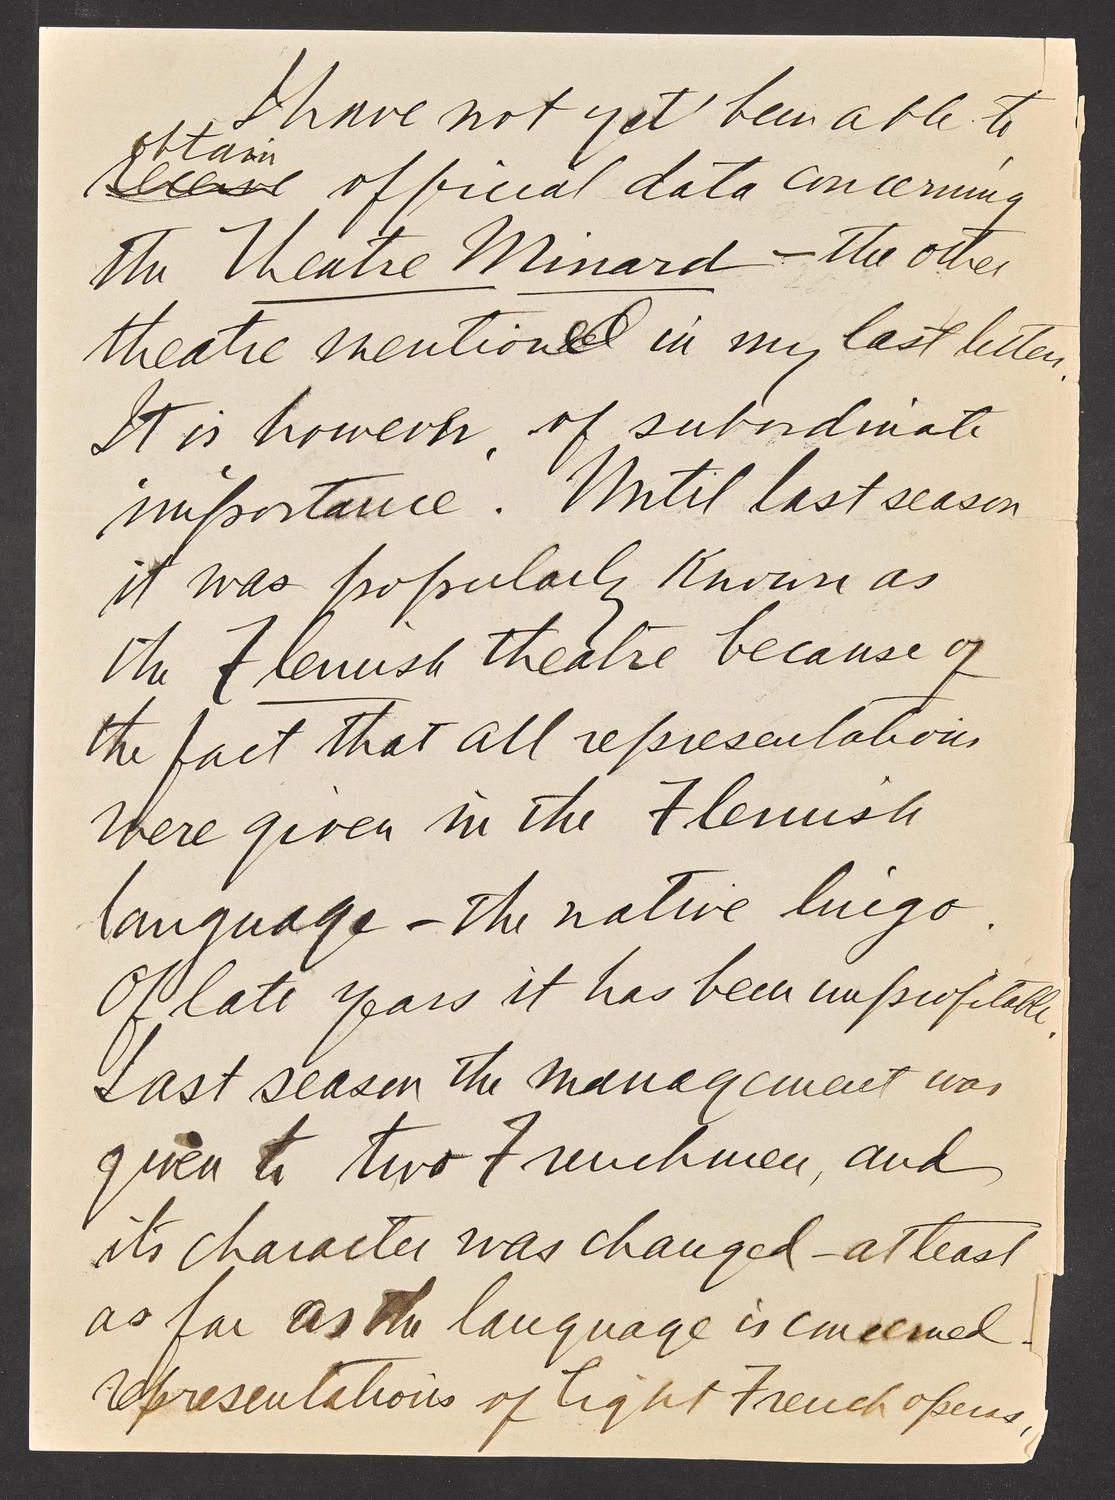 I have not yet been able to
obtain
receive official data concerning
the Theatre Minard – the other
theatre mentioned in my last letter.
It is however, of subordinate
importance. Until last season
it was popularly known as
the Flemish theatre because of
the fact that all representations
were given in the Flemish
language – the native lingo.
Of late years it has been unprofitable.
Last season the management was
given to two Frenchmen, and
its character was changed – at least
as far as the language is concerned –
representations of light French operas,